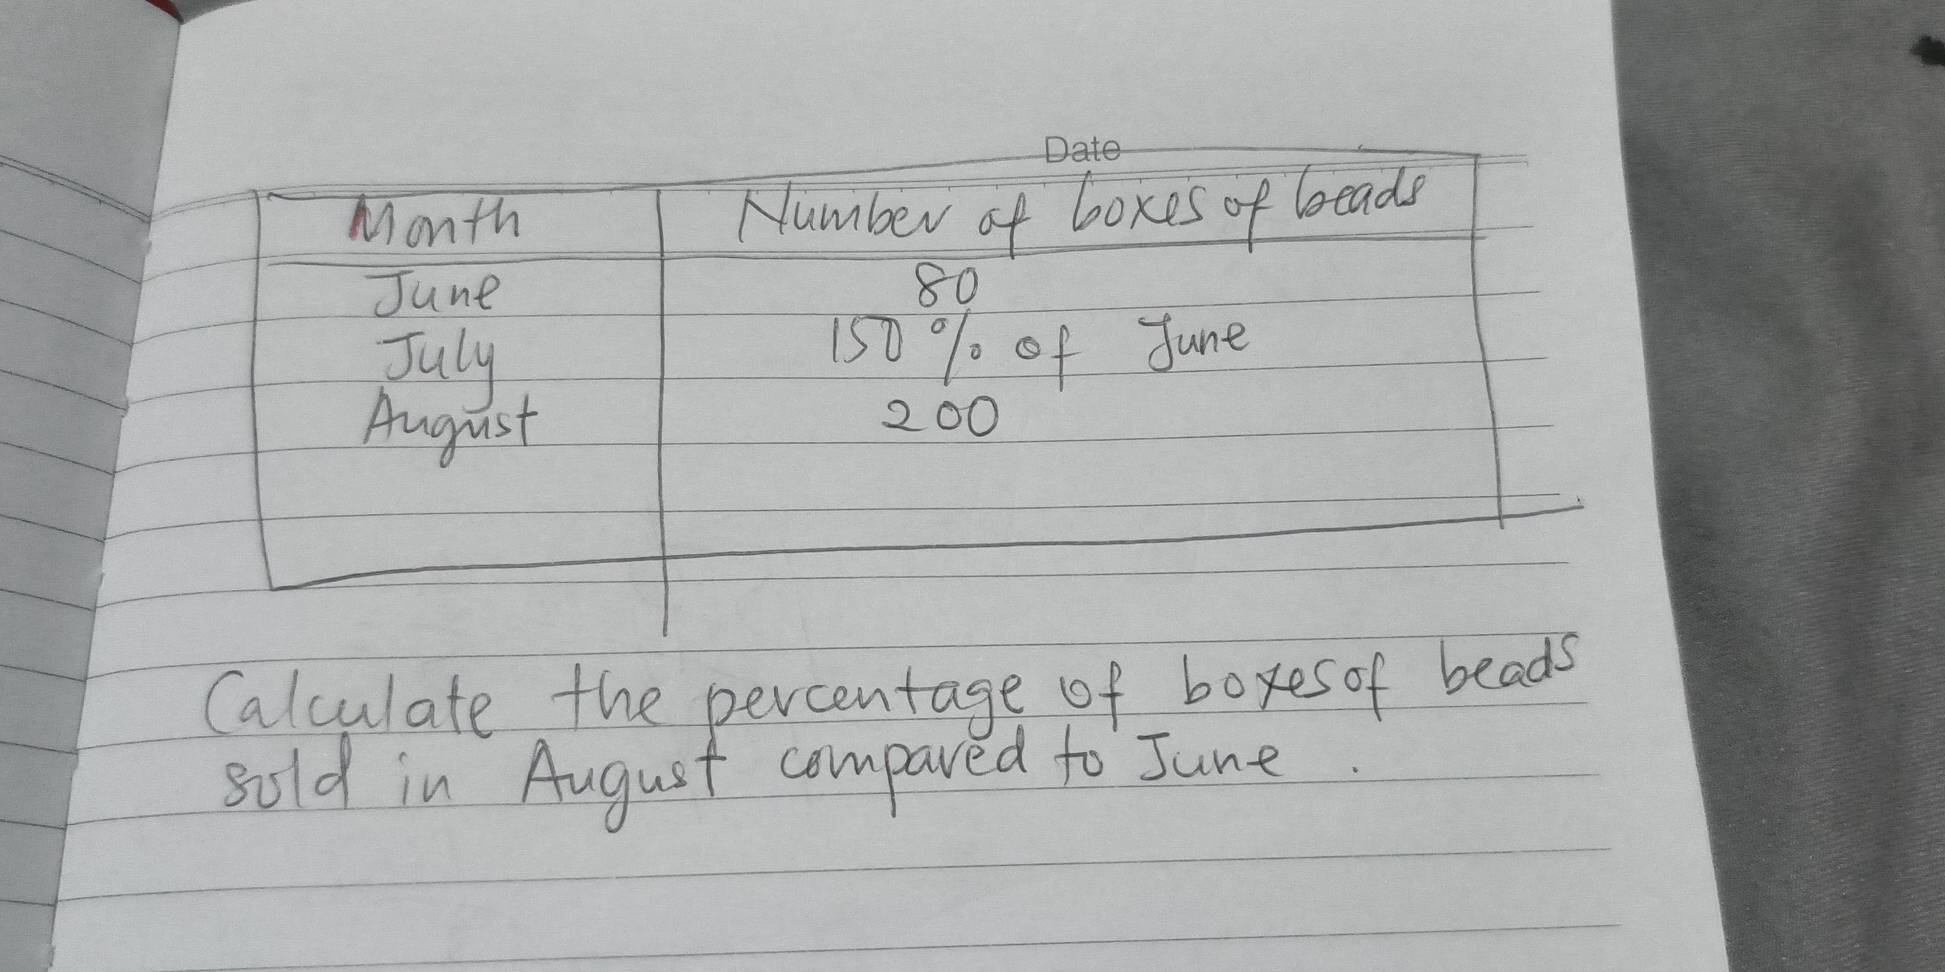 Date
Month Number of boxes of beads
June 80
July 150% of June
August 200
Calculate the percentage of boxes of beads
sold in August compared to June.